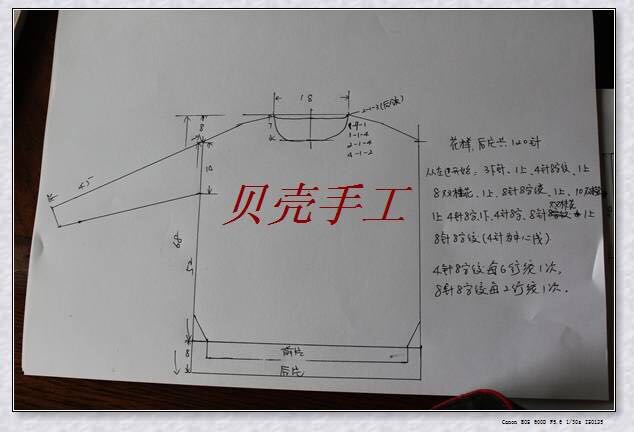 18
2-1-3
1-1-4
2-1-4
4-1-2
8
45
贝壳手工
8
前片
后片
花样,后片共120针
从左边开始:3下针、1上、4针8字纹、1上
8双桂花、1上、8针8字绫、1上、10双桂花
1上4针8字1下、4针8字、8针双桂花1上
8针8字绞(4针为中心线)
4针8字绞每6行绕1次,
8针8字绞每2行绕1次.
Canon EOS 600D F5.6 1/30s ISO125